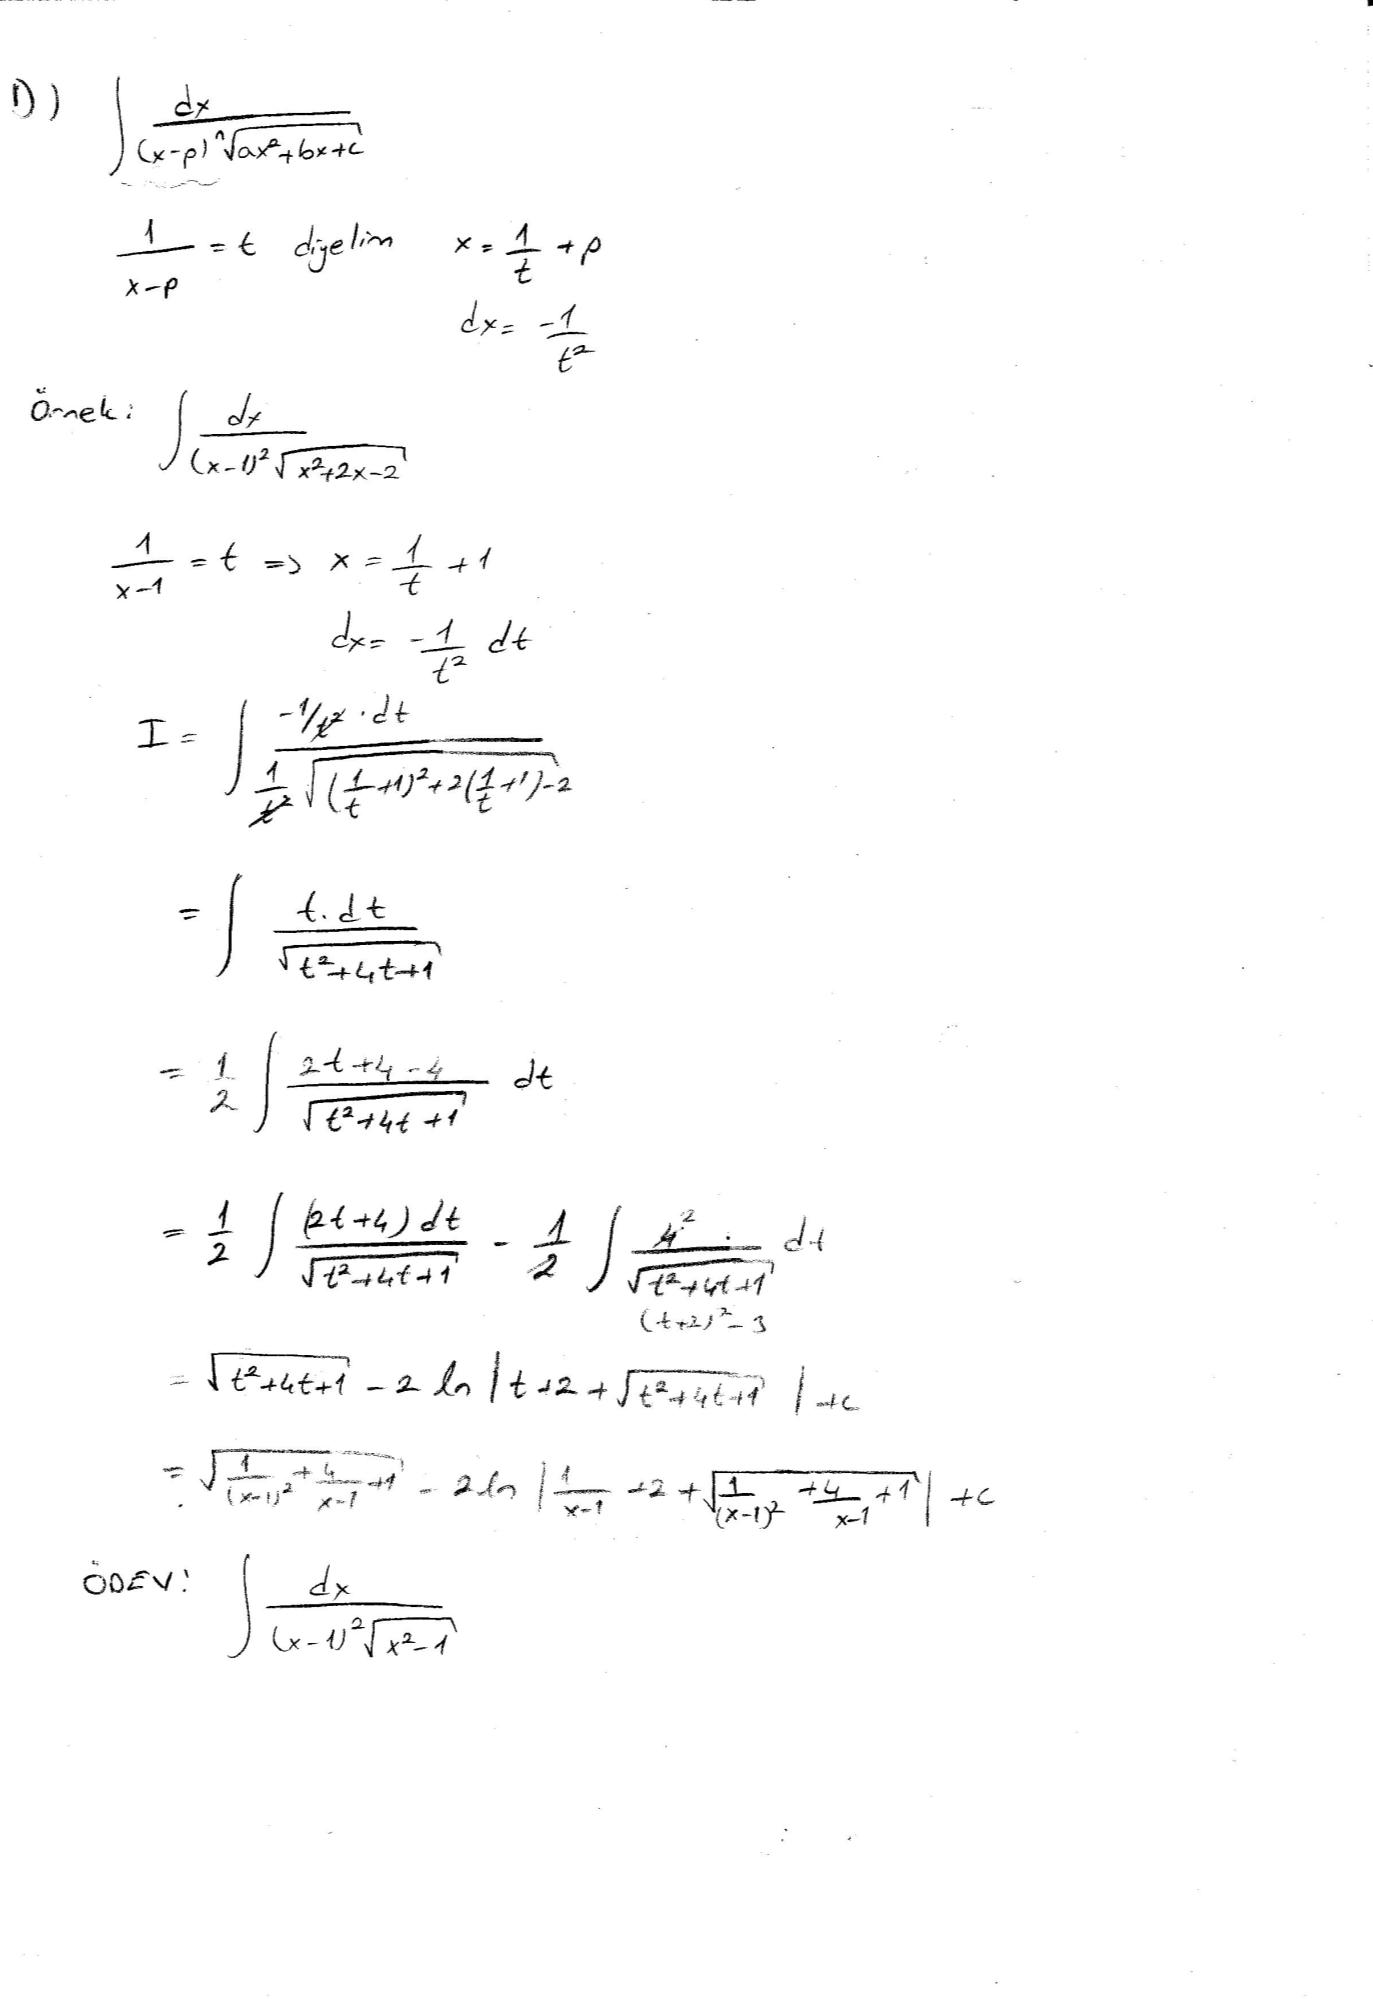 D) ∫ dx / (x-p) ⁿ√(ax²+bx+c)
1/(x-p) = t diyelim x = 1/t + p
dx = -1/t²
Örnek: ∫ dx / (x-1)² √(x²+2x-2)
1/(x-1) = t => x = 1/t + 1
dx = -1/t² dt
I = ∫ -1/t² · dt / 1/t² √((1/t +1)²+2(1/t +1)-2)
= ∫ t.dt / √(t²+4t+1)
= 1/2 ∫ 2t+4-4 / √(t²+4t+1) dt
= 1/2 ∫ (2t+4) dt / √(t²+4t+1) - 1/2 ∫ 4 2 / √(t²+4t+1) dt
(t+2)²-3
= √(t²+4t+1) - 2 ln |t+2+√(t²+4t+1)| +c
= √(1/(x-1)² + 4/(x-1) +1) - 2 ln |1/(x-1) +2+√(1/(x-1)² +4/(x-1) +1)| +c
ÖDEV: ∫ dx / (x-1)² √(x²-1)